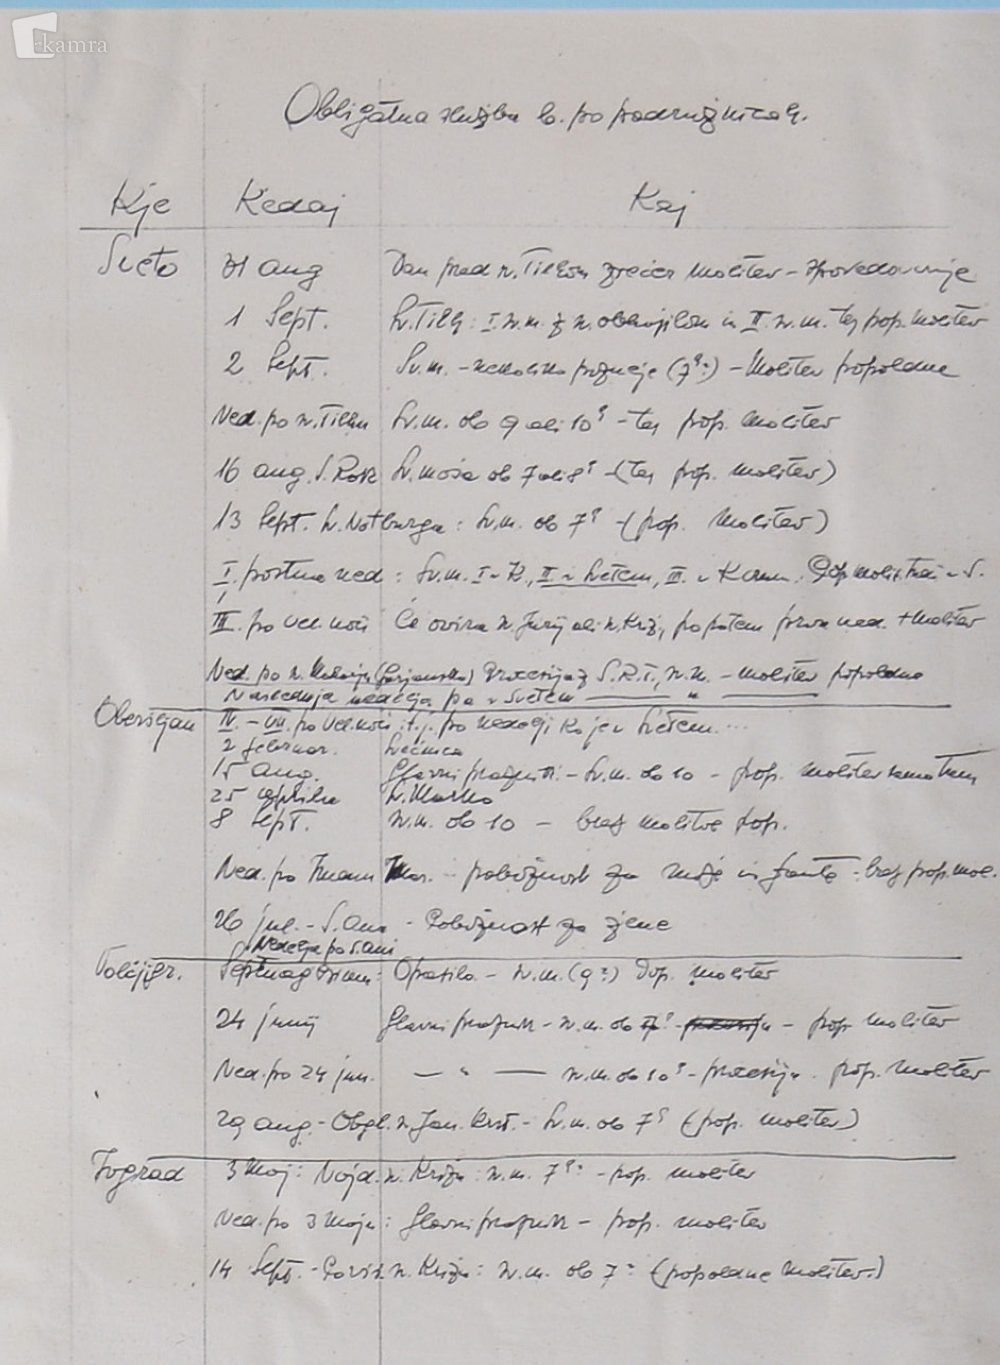 kamra
Obligátna služba b. po podružnicah.
Kje Kedaj Kaj
Sveto 31 aug Dan pred sv. Tilhom zvečer molitev - spovedovanje
1 Sept. Sv. Tilh: I sv.m. z sv. obhajilom in II. sv.m. tez pop. molitev
2 Sept. Sv.m. - nekoliko pozneje (7?) - Molitev popoldne
Ned. po sv. Tilhu Sv.m. ob 9 ali 10 - tez pop. molitev
16 aug. S. Rok Sv. maša ob 7 ali 8 - (tez pop. molitev)
13 Sept. Sv. Notburga: Sv.m. ob 7 - (pop. Molitev)
I. postna ned: Sv.m. I v K., II v Svetem, III. v Komn. v S.
III. po vel. noči Če ovira sv. Jurij ali sv. Križ, pa potem prva ned. + molitev
Ned. po sv. procesija z S.R.T., sv.m. - molitev popoldne
Naslednja nedelja pa v Svetem — " —
Oberšljan IV. - VII. po vel. noči, t.j. po nedelji ko je v Svetem ...
2 februar. Svečnica
15 aug. Glavni praznik - Sv.m. ob 10 - pop. molitev
25 aprila Sv. Marko
8 Sept. sv.m. ob 10 - brez molitve pop.
Ned. po Imenu Mar. - pobožnost za može in fante - brez pop. mol.
26 jul. - S. Ana - Pobožnost za žene
Nedelja po S. Ani
Septuagesima: Opasilo - sv.m. (9?) Dop. molitev
24 junij Glavni praznik - sv.m. ob 7 - procesija - pop. molitev
Ned. po 24 jun. — " — sv.m. ob 10 - procesija. pop. molitev
29 aug. - Obgl. sv. Jan. Krst. - Sv.m. ob 7 (pop. molitev)
3 Maj: Najd. sv. Križa: sv.m. 7 - pop. molitev
Ned. po 3 maju: Glavni praznik - pop. molitev
14 Sept. - Poviš. sv. Križa: sv.m. ob 7 (popoldne molitev)